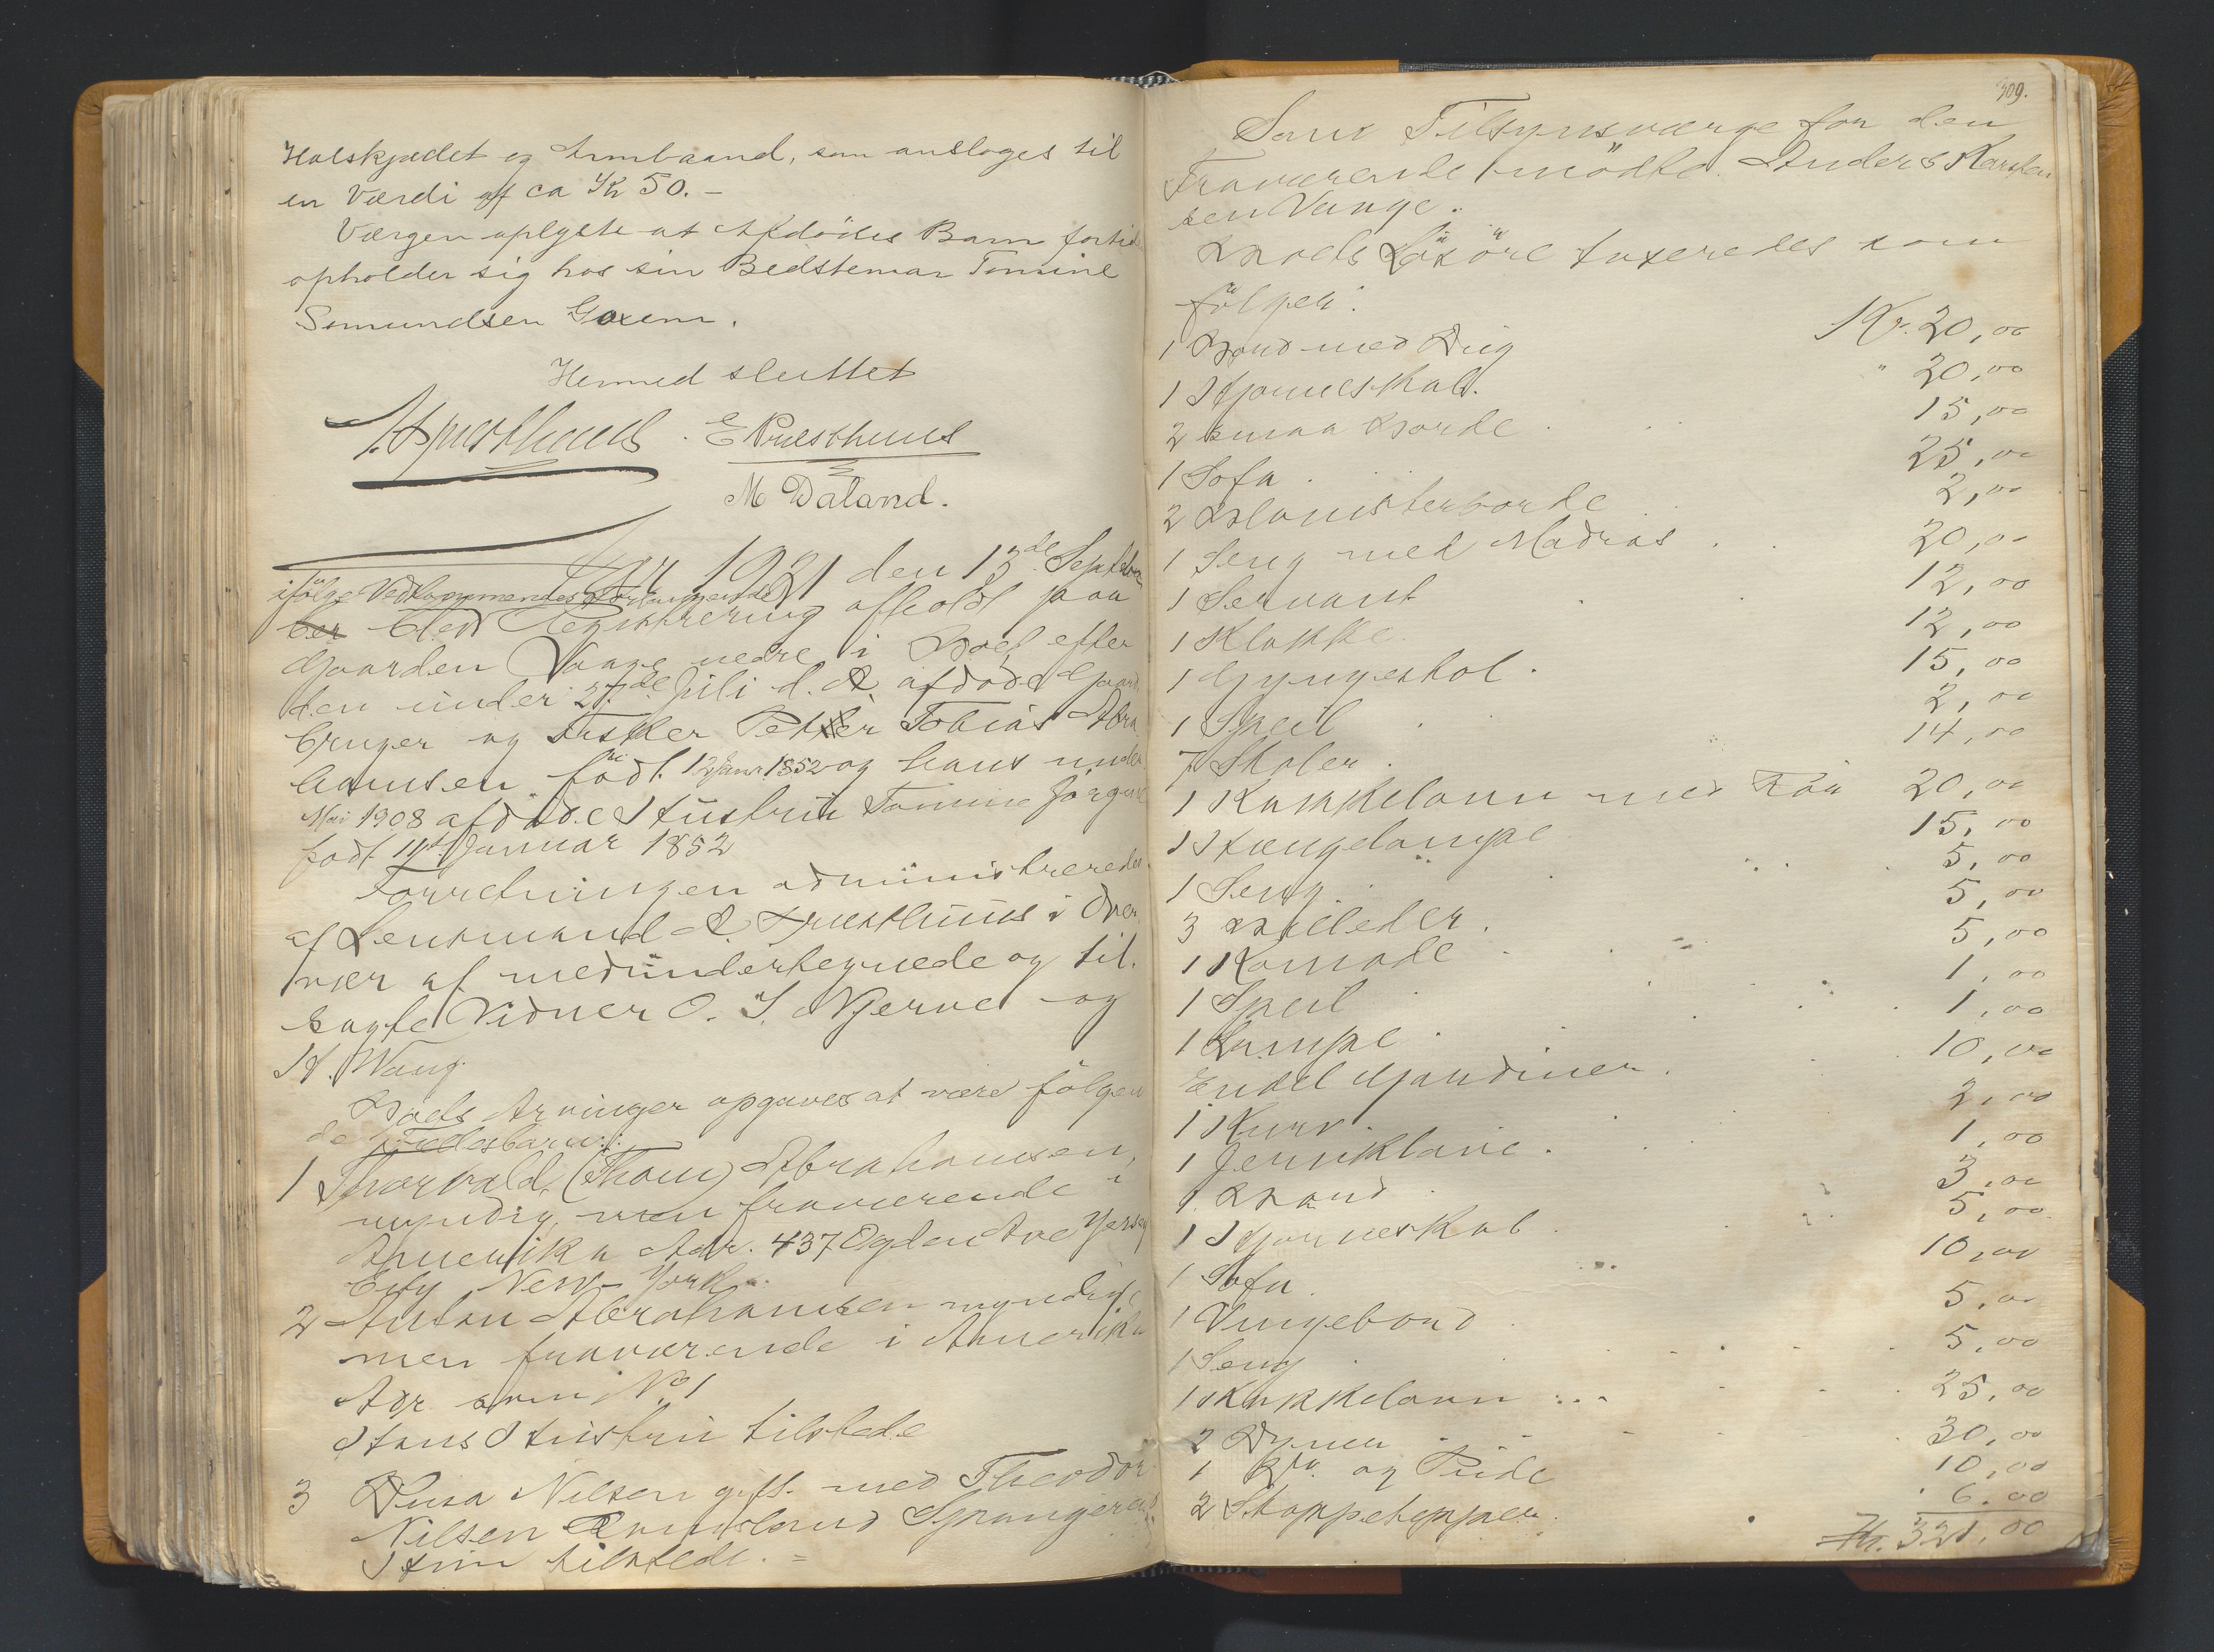 Halskjædet og Armbaand, som ansloges til
en Værdi af ca Kr 50.-
Værgen oplyste at Afdødes Barn fortid
opholder sig hos sin Bedstemor Tomine
Semundsen
Hermed sluttet
E Præsthuus
M Daland.
Aar 1921 den 13de Septem
ifølge Vedkommendes Forlangende
ber blev Registrering afholdt paa
Gaarden Vaage nedre i Boet efter
den under 27de Juli d. A. afdøde Gaard
bruger og Fisker Petter Tobias Abra
hamsen født 12 Janr. 1852 og hans under
Mai 1908 afdøde Hustru Tomine Jørgens
født 14de Januar 1852
Forretningen administreredes
af Lensmand A. Præsthuus i Over
vær af medundertegnede og til.
sagte Vidner O. T. Njerve og
H. Wang.
Boets Arvinger opgaves at være følgen
de Fællesbarn:
1 Thorvald (Thom) Abrahamsen,
myndig, men fraværende i
Amerika Adr. 437 Ogden Ave Jersey
City New-York.
2 Anton Abrahamsen myndig
men fraværende i Amerika
Adr som No 1
Hans Hustru tilstede
3 Nilsen gift med Theodor
Nilsen Spangereid
Hun tilstede. =
309.
Som Tilsynsværge for den
Fraværende mødte Anders Karsten
sen Vaage.
Boets Løsøre taxeredes som
følger:
1 Bord med Dug Kr. 20,00
1 Hjørneskab. " 20,00
2 smaa Borde 15,00
1 Sofa 25,00
2 Blomsterborde 2,00
1 Seng med Madras 20,00
1 Servant 12,00
1 Klokke 12,00
1 Gyngestol 15,00
1 Speil 2,00
7 Stoler 14,00
1 Kakkelovn med Rør 20,00
1 Hængelampe 15,00
1 Seng 5,00
3 Billeder 5,00
1 Komode 5,00
1 Speil 1,00
1 Lampe 1,00
Endel Gardiner 10,00
1 Kurv 2,00
1 1,00
1 Bord 3,00
1 Hjørneskab 5,00
1 Sofa 10,00
1 Vingebord 5,00
1 Seng 5,00
1 Kakkelovn 25,00
2 Dyner 30,00
1 Do. og Pude 10,00
2 Stoppetepper 6.00
Kr. 321,00